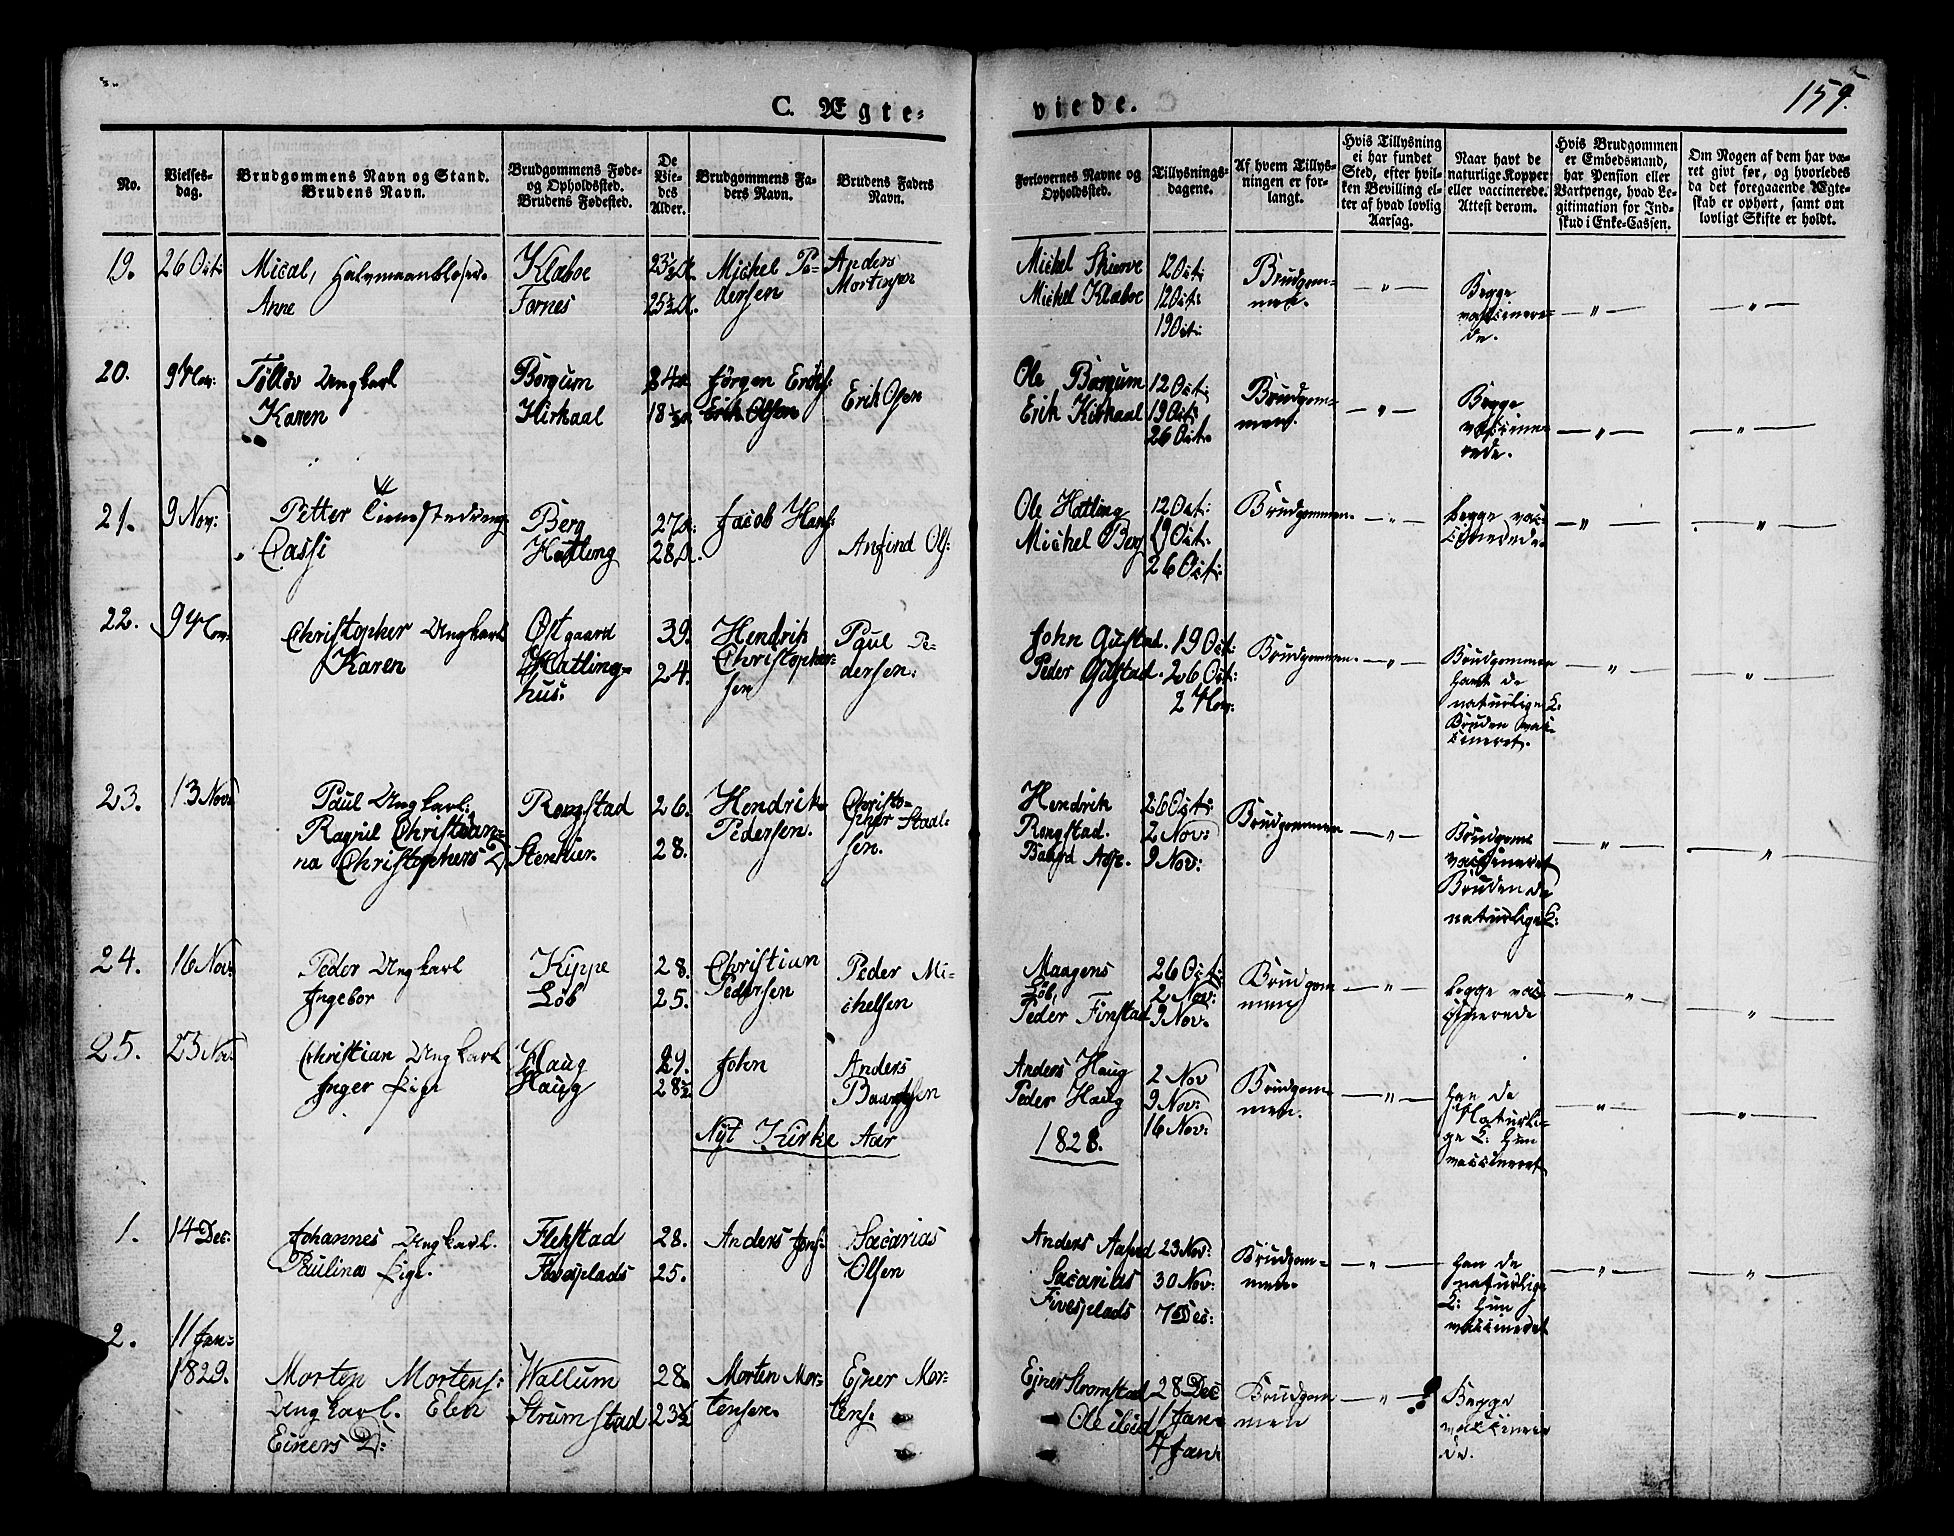 C. Ægte-
viede.
159.
No.
Vielses-
dag.
Brudgommens Navn og Stand.
Brudens Navn.
Brudgommens Føde-
og Opholdssted.
Brudens Fødested.
De
Vie-
des
Alder.
Brudgommens Fa-
ders Navn.
Brudens Faders
Navn.
Forlovernes Navne og
Opholdssted.
Tillysnings-
dagene.
Af hvem Tillys-
ningen er for-
langt.
Hvis Tillysning
ei har fundet
Sted, efter hvil-
ken Bevilling el-
ler af hvad lovlig
Aarsag.
Naar havt de
naturlige Kopper
eller vaccinerede.
Attest derom.
Hvis Brudgommen
er Embedsmand,
har Pension eller
Vartpenge, hvad Le-
gitimation for Ind-
skud i Enke-Cassen.
Om Nogen af dem har væ-
ret givt før, og hvorledes
da det foregaaende Ægte-
skab er ophørt, samt om
lovligt Skifte er holdt.
19.
26 Oct:
Mical,
Anne
Klæboe
Fornes
23½
25½
Michel Pe-
dersen
Anders
Mortensen
Michel Skierve
Michel Klæboe
12 Oct:
12 Oct:
19 Oct:
Brudgom-
men.
— " —
Begge
vaccinere-
de.
— " —
— " —
20.
9 Nov:
Tøllev Ungkarl
Karen
Borgum
Kirkaal
24
18½
Jørgen Erichs:
Erik Olsen
Erik Olsen
Ole Borgum
Erik Kirkaal
12 Oct:
19 Oct:
26 Oct.
Brudgom-
men.
— " —
Begge
vaccine-
rede.
— " —
— " —
21.
9 Nov:
Petter
Cassi
Berg
Hatling
27
28
Jacob Hans:
Anfind Ols:
Ole Hatling
Michel Berg
12 Oct:
19 Oct:
26 Oct:
Brudgommen.
— " —
begge vac-
cinerede.
— " —
— " —
22.
9 Nov:
Christopher Ungkarl
Karen
Østgaard
Hatling-
hus.
39.
24.
Hendrik
Christopher-
sen
Paul Pe-
dersen.
John Gustad.
Peder Gustad.
19 Oct:
26 Oct:
2 Nov:
Brudgommen.
— " —
Brudgommen
havt de
naturlige K:
Bruden vac-
cineret.
— " —
— " —
23.
13 Nov:
Paul Ungkarl.
Ragnil Christian-
na Christophers D.
Rongstad
Stenkier.
26.
28.
Hendrik
Pedersen.
Christo-
pher Staal-
sen.
Hendrik
Rongstad.
Baugd Aase.
26 Oct:
2 Nov:
9 Nov:
Brudgommen
— " —
Brudgome
vaccineret
Bruden de
naturlige K:
— " —
— " —
24.
16 Nov:
Peder Ungkarl
Ingebor
Kippe
Løb
28.
25.
Christian
Pedersen
Peder Mi-
chelsen
Maagens
Løb,
Peder Finstad
26 Oct:
2 Nov:
9 Nov.
Brudgom
men
— " —
begge vac-
cinerede
— " —
— " —
25.
23 Nov:
Christian Ungkarl
Inger Pige
Haug
Haug
29.
28½
John
Anders
Baardsen
Anders Haug
Peder Haug
2 Nov
9 Nov:
16 Nov:
Brudgom-
men.
— " —
han de
Naturli-
ge K: hun
vaccineret
— " —
— " —
Nyt Kirke Aar
1828.
1.
14 Dec:
Johannes Ungkarl.
Paulina Pige.
Flekstad
28.
25.
Anders Jens:
Sacarias
Olsen
Anders
Sacarias
Fivesplads
23 Nov:
30 Nov:
7 Dec:
Brudgom-
men
— " —
han de
naturlige
K: hun
vaccineret
— " —
— " —
2.
11 Jan:
1829.
Morten Mortens:
Ungkarl. Elen
Einers D:
Wallum
Strumstad
28.
23½
Morten Mor-
tensen.
Ejner Mor-
tens.
Ejner Stromstad
Ole ibid
28 Dec
1 Jan
4 Jan:
Brudgom
men
— " —
Begge
vaccinere
de.